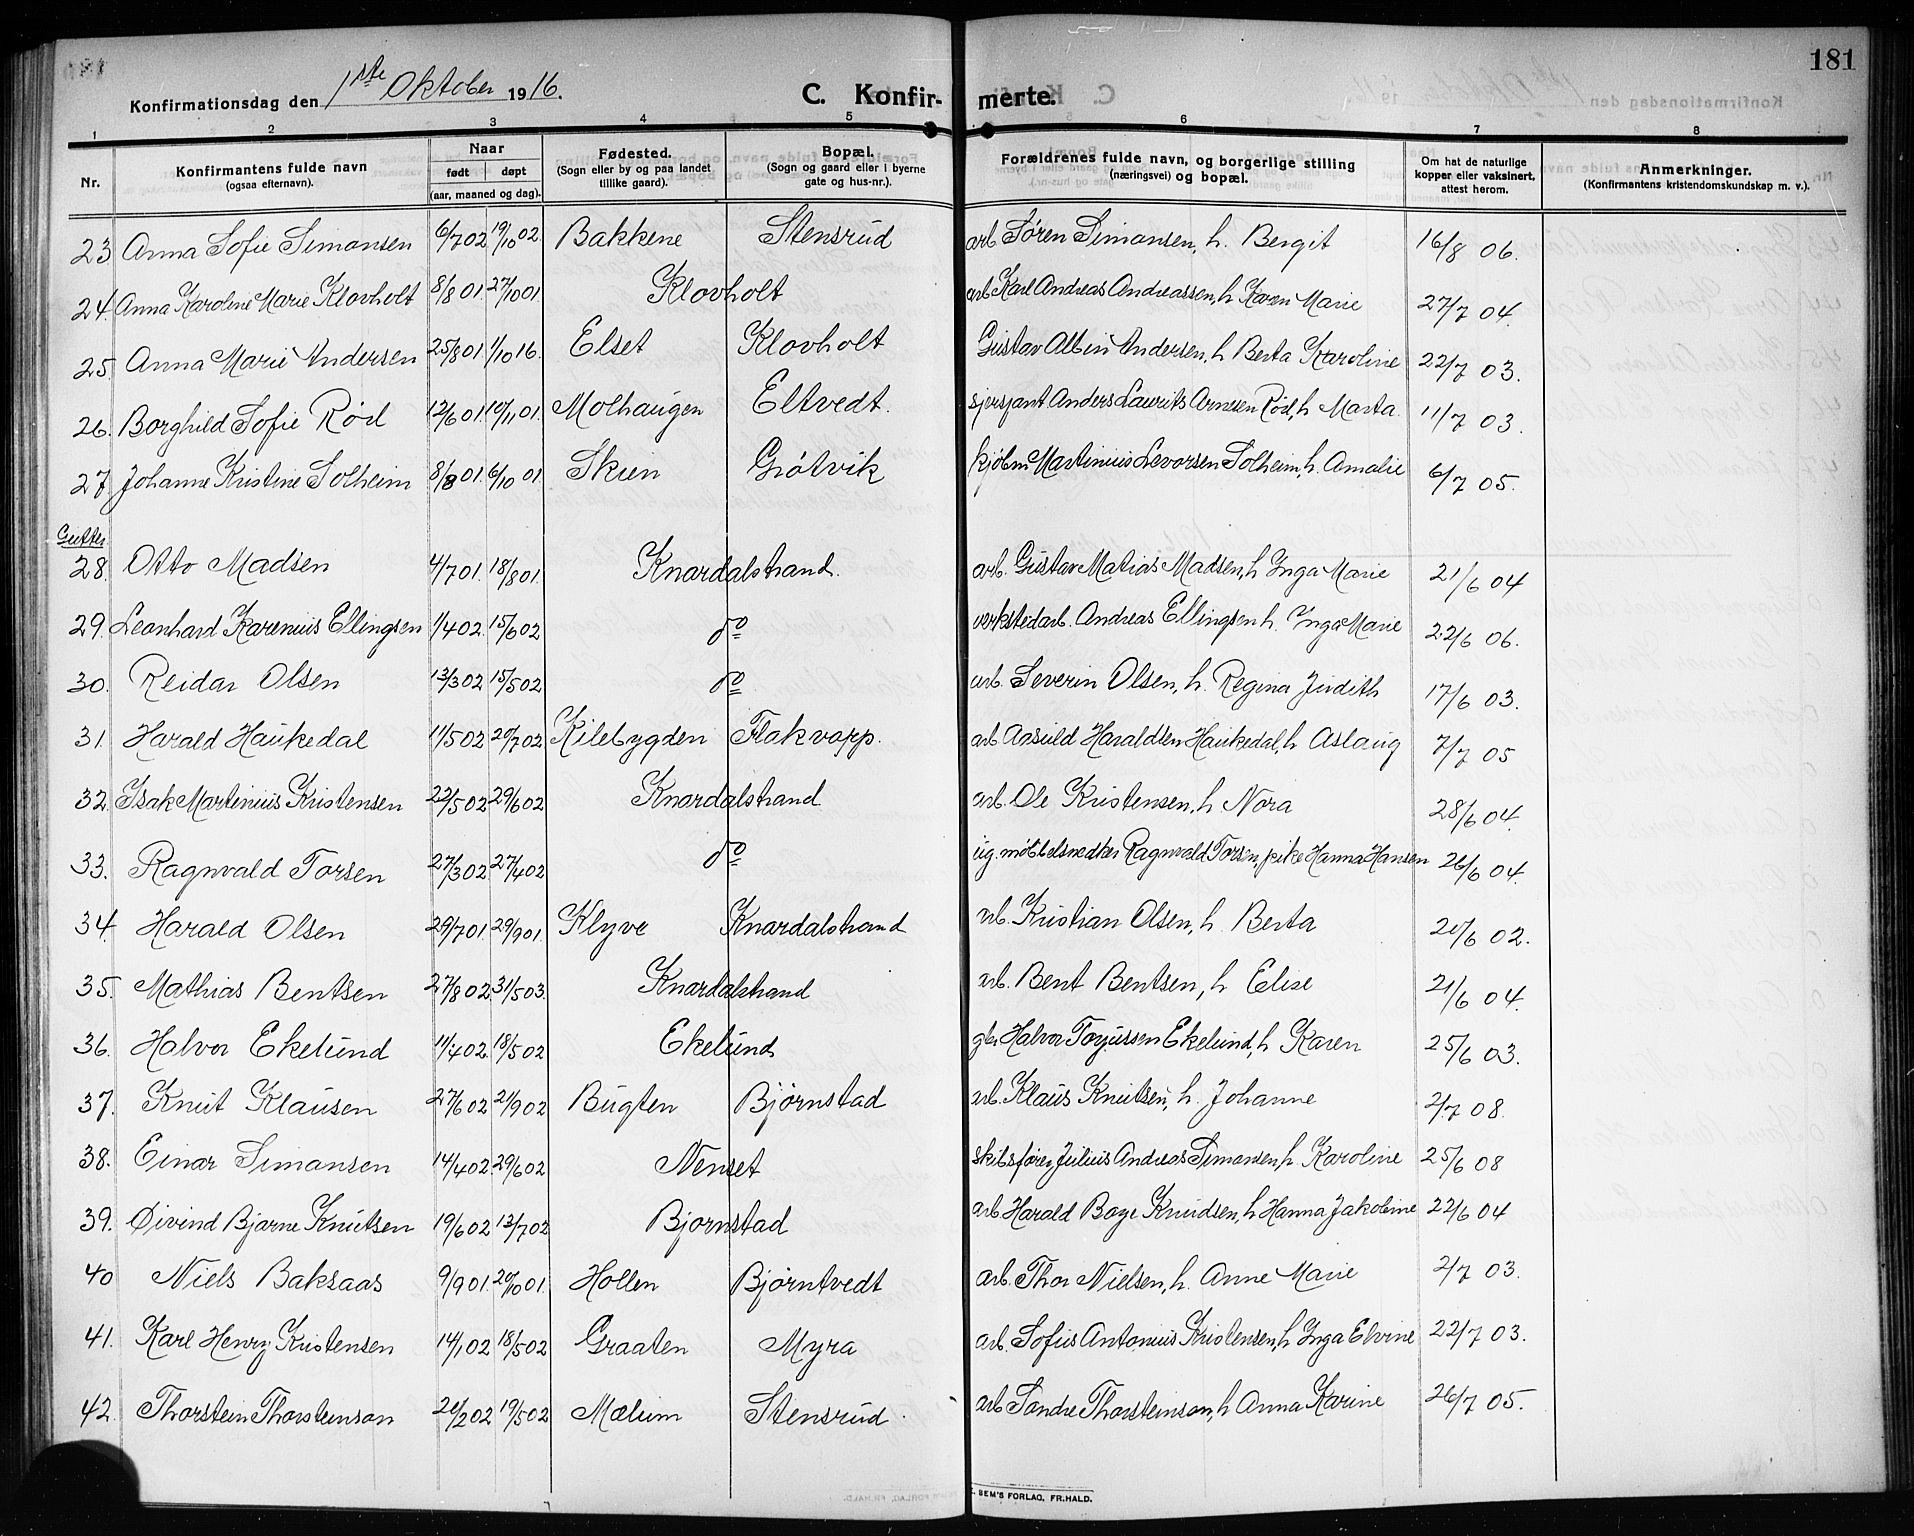 181
Konfirmationsdag den 1ste Oktober 1916.
C. Konfirmerte.
1 2 3 4 5 6 7 8
Nr. Konfirmantens fulde navn (ogsaa efternavn). Naar født døpt (aar, maaned og dag). Fødested. (Sogn eller by og paa landet tillike gaard). Bopæl. (Sogn og gaard eller i byerne gate og hus-nr.). Forældrenes fulde navn, og borgerlige stilling (næringsvei) og bopæl. Om hat de naturlige kopper eller vaksinert, attest herom. Anmerkninger. (Konfirmantens kristendomskundskap m. v.).
23. Anna Sofie Simonsen 6/7 02 19/10 02. Bakkene Stensrud arb. Søren Simonsen, h. Bergit 16/8 06.
24. Anna Karoline Marie Klovholt 8/8 01. 27/10 01 Klovholt arb. Karl Andreas Andreassen, h Karen Marie 27/7 04.
25. Anna Marie Andersen 25/8 01. 1/10 16. Elset Klovholt Gustav Albin Andersen, h Berta Karoline 22/7 03.
26. Borghild Sofie Rød 12/6 01. 10/11 01. Molhaugen Eltvedt. sjersjant Anders Laurits Arnesen Rød, h Marta. 11/7 03.
27. Johanne Kristine Solheim 8/8 01. 6/10 01. Skien Grøtvik kjøbm Martinius Levorsen Solheim, h. Amalie 6/7 05.
Gutter.
28. Otto Madsen 4/7 01. 18/8 01. Knardalstrand. arb. Gustav Matias Madsen, h Inga Marie 21/6 04
29. Leonhard Karenius Ellingsen 1/4 02. 15/6 02 do verkstedarb. Andreas Ellingsen h. Inga Marie 22/6 06.
30. Reidar Olsen 13/3 02 15/5 02. do arb. Severin Olsen, h. Regina Judith 17/6 03.
31. Harald Haukedal 11/5 02 20/7 02. Kilebygden Flakvarp. arb. Aasuld Haraldsen Haukedal, h Aslaug 7/7 05
32. Isak Martinius Kristensen 22/5 02 29/6 02. Knardalstrand arb. Ole Kristensen, h Nora 28/6 04.
33. Ragnvald Torsen 27/3 02. 27/4 02 do ug. møbelsnedker Ragnvald Torsen, pike Hanna Hansen 26/6 04.
34. Harald Olsen 29/7 01. 29/9 01. Klyve Knardalstrand arb. Kristian Olsen, h. Berta 20/6 02.
35. Mathias Bentsen 27/8 02. 31/5 03. Knardalstrand arb. Bent Bentsen, h Elise 21/6 04.
36. Halvor Ekelund 11/4 02. 18/5 02 Ekelund gbr Halvor Torjussen Ekelund, h Karen 25/6 03.
37. Knut Klausen 27/6 02 21/9 02 Bugten Bjørnstad arb. Klaus Knutsen, h. Johanne 2/7 08.
38. Einar Simonsen 14/4 02 29/6 02 Nenset skibsfører Julius Andreas Simonsen, h. Karoline 25/6 08
39. Øivind Bjarne Knutsen 19/6 02 13/7 02 Bjornstad arb Harald Boye Knudsen, h Hanna Jakobine 22/6 04
40 Niels Baksaas 9/9 01. 20/10 01. Hollen Bjørntvedt arb. Thor Nielsen, h. Anne Marie 2/7 03.
41. Karl Henry Kristensen 14/1 02 18/5 02 Graaten Myra arb. Sofus Antonius Kristensen, h Inga Elvine 22/7 03.
42. Thorstein Thorsteinson 20/2 02 19/5 02 Mælum Stensrud arb Sondre Thorsteinson, h Anna Karine 26/7 05.
SEM'S FORLAG, FR.HALD.